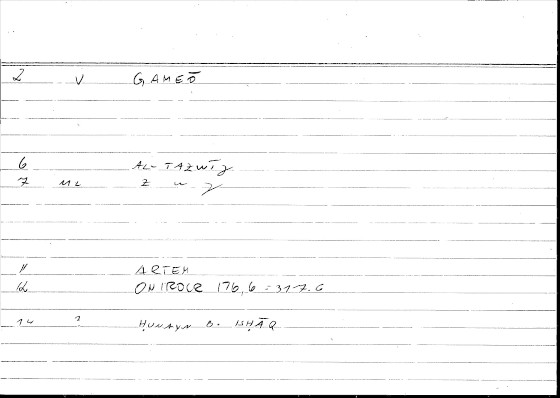 2 V GAMEŌ
6 AL-TAZWĪǧ
7 ML Z W ǧ
11 ARTEM
12 ONIROCR 176,6 = 317.6
14 ? ḤUNAYN B. ISḤĀQ